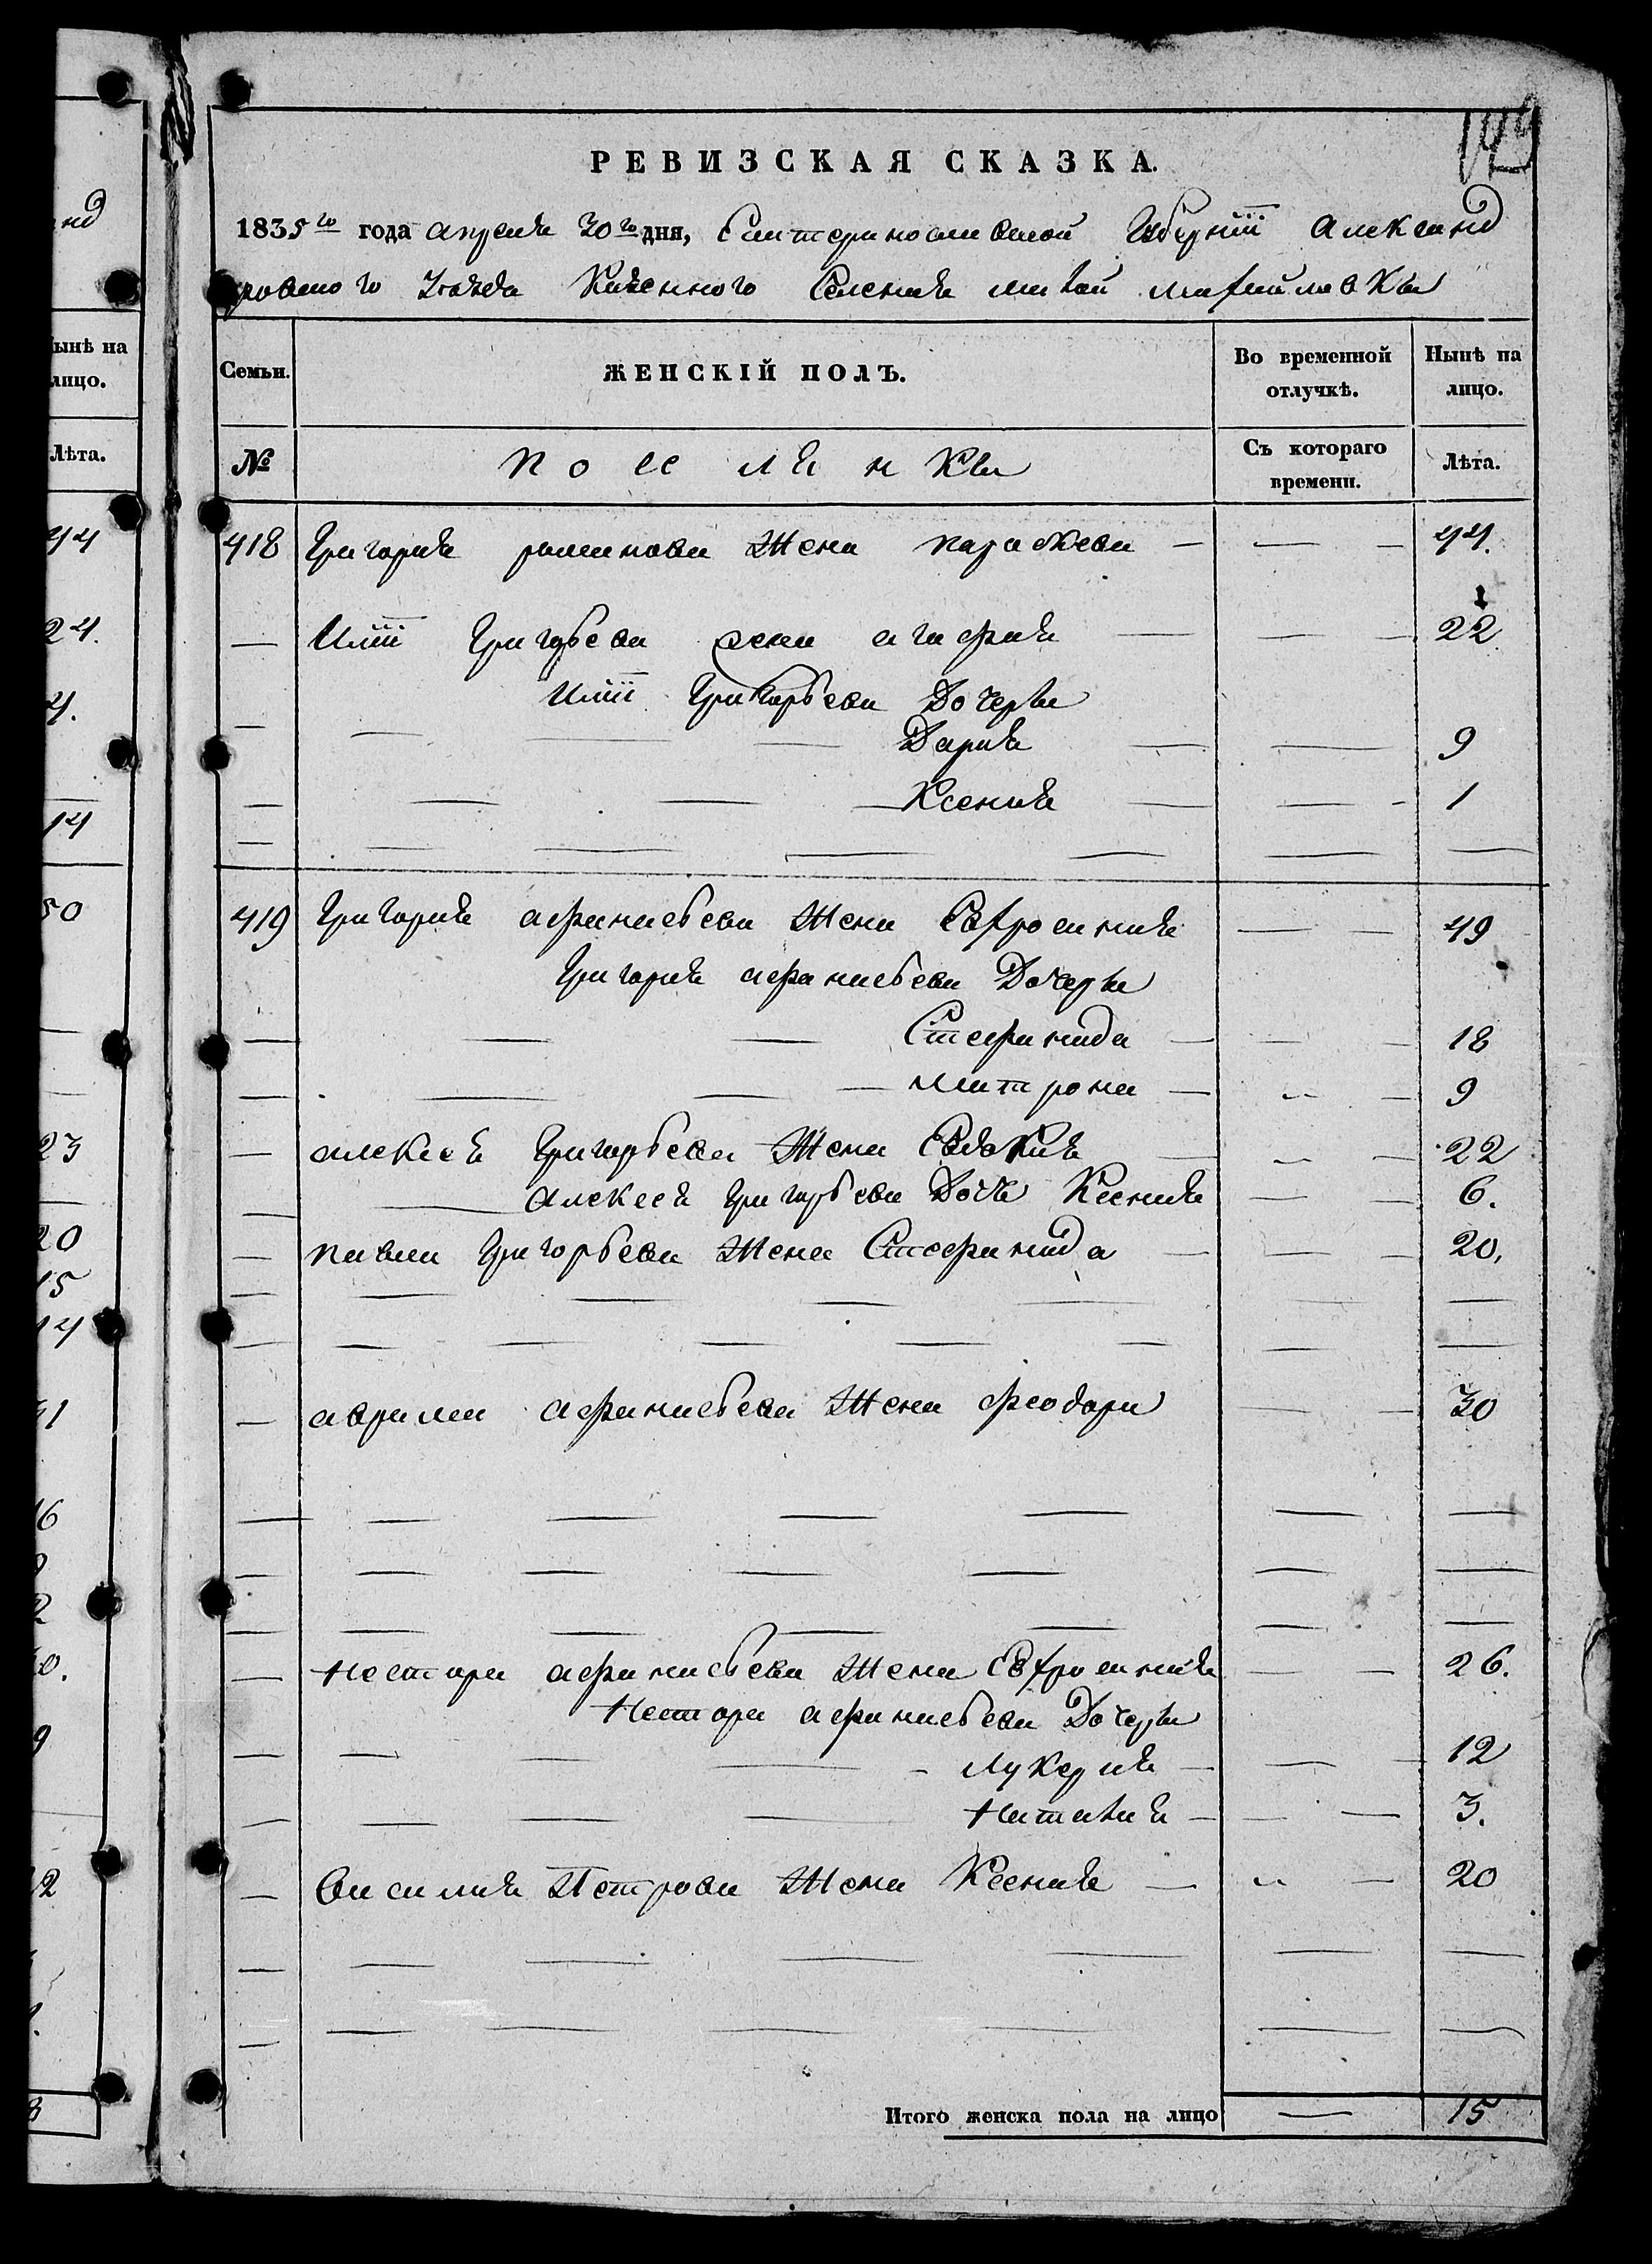 нд
ынѣ на
лицо.
Лѣта.
44
24.
4.
14
50
23
20
15
14
31
16
2
0.
9
12
8
149
РЕВИЗСКАЯ СКАЗКА.
1835го года апреля 30го дня, Екатеринославской Губернiи Александ
ровского Уѣзда Казенного Селения малой михайловки
Семьи.
ЖЕНСКІЙ ПОЛЪ.
Во временной отлучкѣ.
Нынѣ на лицо.
№
поселянки
Съ котораго времени.
Лѣта.
418 Григория романова Жена параскева — — — 44.
— Илiи Григорьева жена агафия — — — 22
Илiи Григорьева Дочери
— — — — Дария — — 9
— — — — Ксения — — - 1
— — — — — — —
419 Григория афанасьева Жена Евфросиния — — 49
Григория афанасьева Дочери
— — — Стефанида — — — 18
— — — — матрона — — — 9
— алексея Григорьева Жена Евдокия — — — 22
— — Алексея григорьева Дочь Ксения — — 6.
— павла Григорьева Жена Стефанида — — — 20.
— — — — — — —
— — — — — — —
— аврама афанасьева Жена феодора — — 30
— — — — — — —
— — — — — — —
— — — — — —
— Нестора афанасьева Жена Евфросиния — — 26.
Нестора афанасьева Дочери
— — — — - лукерия — — — 12
— — — — Наталия — — — 3.
— Василия Петрова Жена Ксения — — — 20
— — — — — — —
— — — — — — —
Итого женска пола на лицо — 15